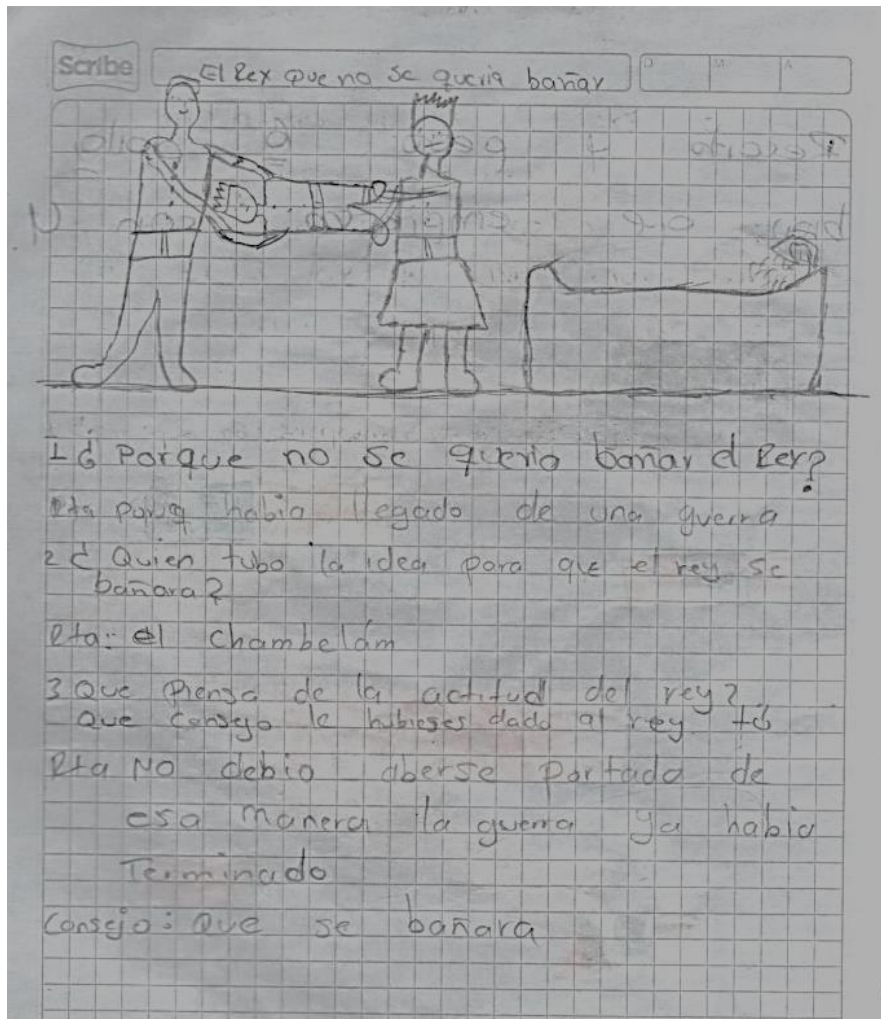 Scribe
El Rey que no se queria bañar
D M A
1 ¿ Porque no se queria bañar el Rey?
Rta porq habia llegado de una guerra
2 ¿ Quien tubo la idea para que el rey se
bañara?
Rta: el chambelám
3 Que Piensa de la actitud del rey?
Que consejo le hubieses dado al rey tú
Rta NO debio aberse portado de
esa manera la guerra ya habia
Terminado
Consejo: Que se bañara